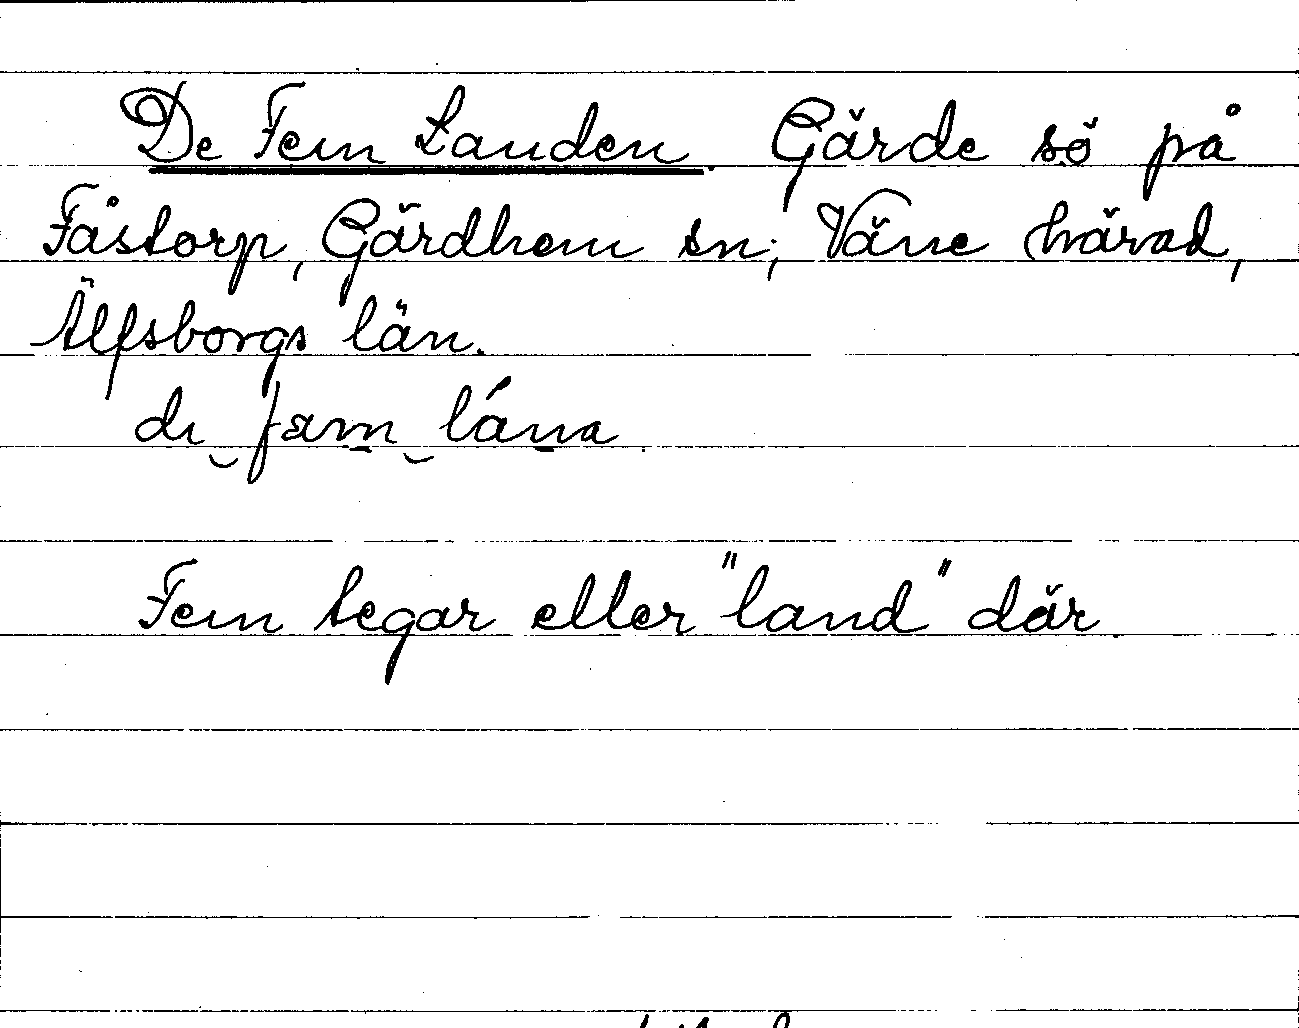 De Fem Landen. Gärde sö på
Fåstorp, Gärdhem sn; Väne härad,
Älfsborgs län.
dı fæm lána.
Fem tegar eller "land" där.